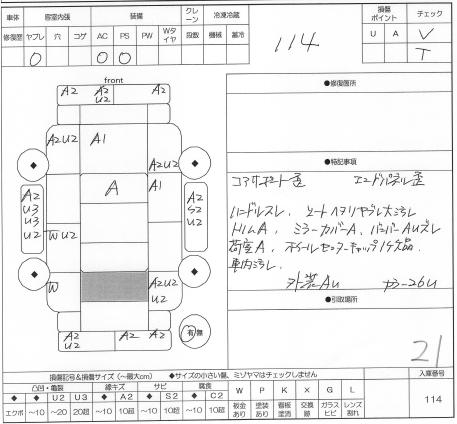 車体 客室内張 装備 クレーン 冷凍冷蔵
修復歴 ヤブレ 穴 コゲ AC PS PW Wタイヤ 段数 機械 蓄冷
○ ○ ○
114
損傷ポイント チェック
U A V
T
front
A2 A2 U2 A2
A2U2 A1
A2U2
A A1
A2 U3 U3 U2
W U2
A2 S2 U2
W
A2U2 U2
A2 U2 A2 A2
有/無
●修復箇所
●特記事項
コアサポート歪 エンドパネル歪
ハンドルスレ、シートヘタリヤブレ大汚レ
ドリムA、ミラーカバーA、バンパーAUズレ
荷室A、ホイールセンターキャップ1ケ欠品、
車内汚レ、
外装AU カラー26U
●引取場所
21
損傷記号&損傷サイズ(~最大cm) ◆サイズの小さい傷、ミゾヤマはチェックしません
凸凹・亀裂 線キズ サビ 腐食
◆ ◆ U2 U3 ◆ A2 ◆ S2 ◆ C2
エクボ ~10 ~20 20超 ~10 10超 ~10 10超 ~10 10超
W P K X G L
板金あり 塗装あり 看板塗消 交換跡 ガラスヒビ レンズ割れ
入庫番号
114